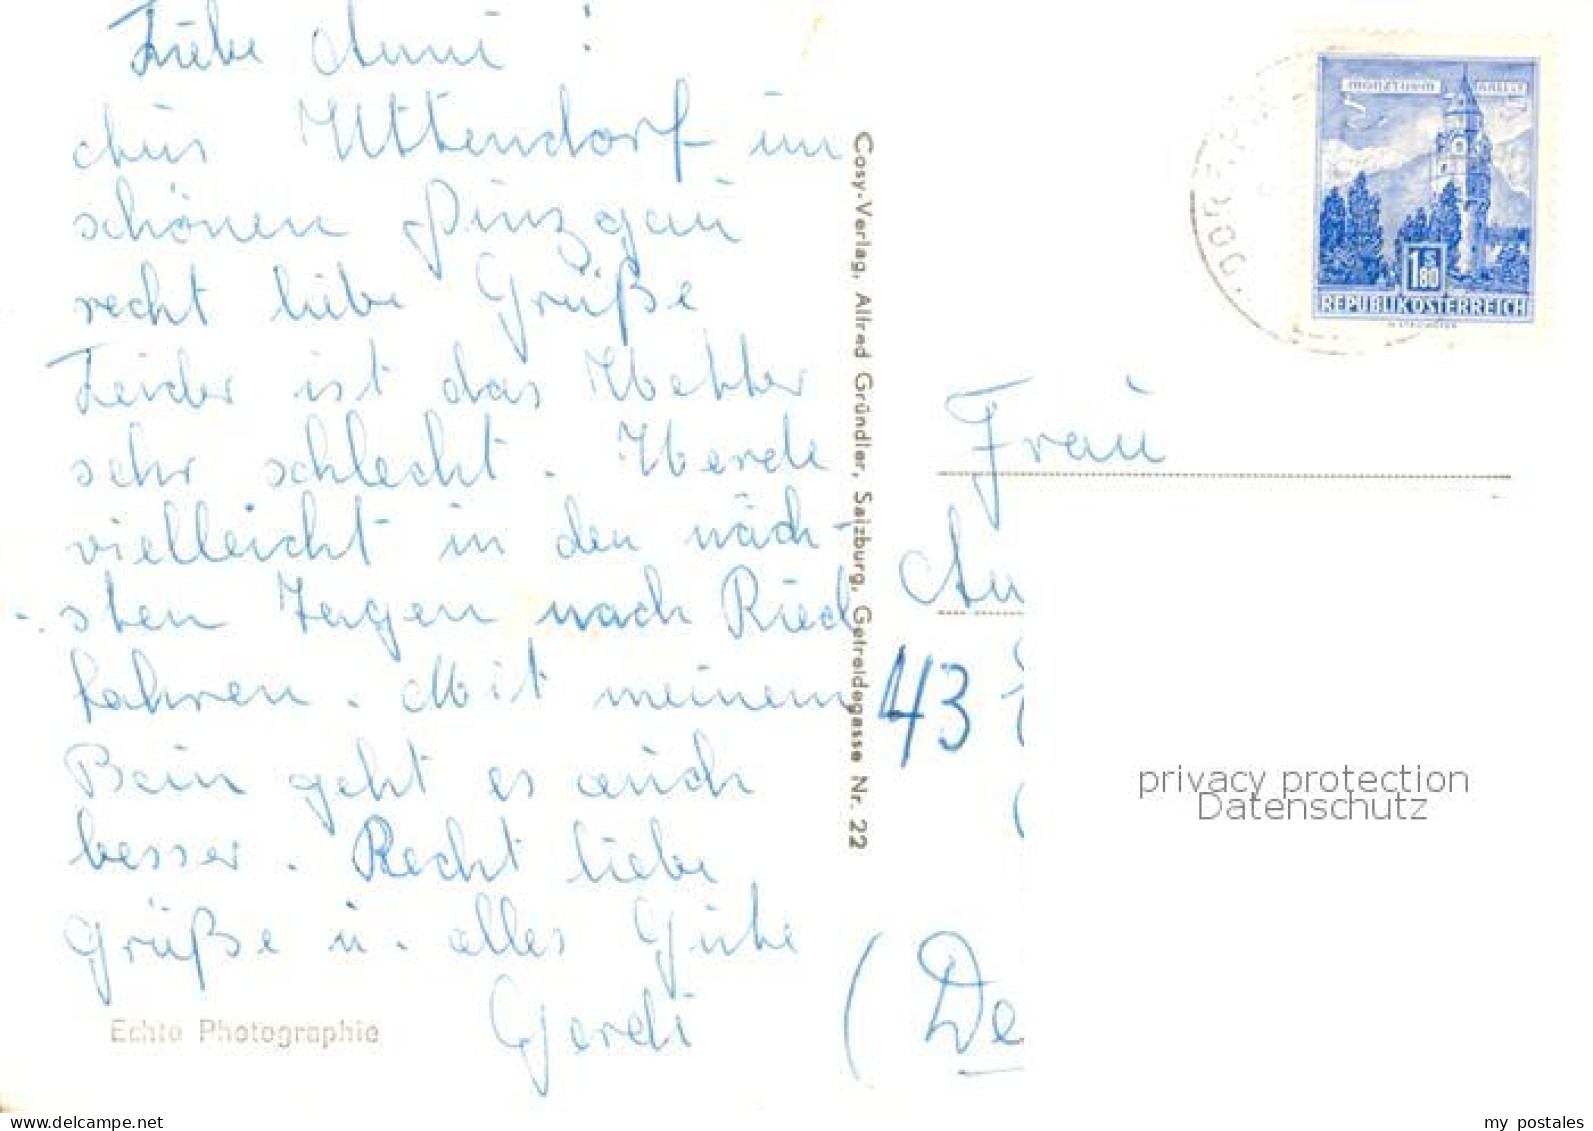 Liebe Anni !
Aus Uttendorf im
schönen Pinzgau
recht liebe Grüße
Leider ist das Wetter
sehr schlecht. Werde
vielleicht in den näch-
sten Tagen nach Ried
fahren. Mit meinem
Bein geht es auch
besser. Recht liebe
Grüße u. alles Gute
Gerdi
Echte Photographie
Cosy-Verlag, Alfred Gründler, Salzburg, Getreidegasse Nr. 22
MÜNZTURM HALL i/T
1 S 80
REPUBLIK ÖSTERREICH
Frau
An
43
(De
privacy protection
Datenschutz
delcampe.net
my_postales